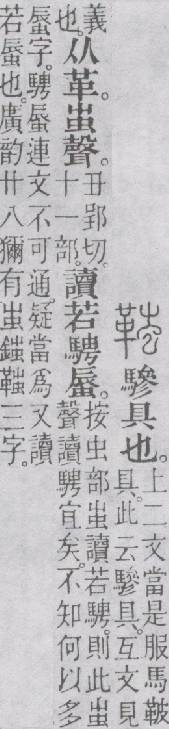 驂具也。上二文當是服馬鞁
具。此云驂具。互文見
義
也。从革蚩聲。丑郢切。
十一部。讀若騁蜃。按虫部蚩讀若騁。則此蚩
聲讀騁宜矣。不知何以多
蜃字。騁蜃連文不可通。疑當爲又讀
若蜃也。廣韵廿八獮有蚩三字。